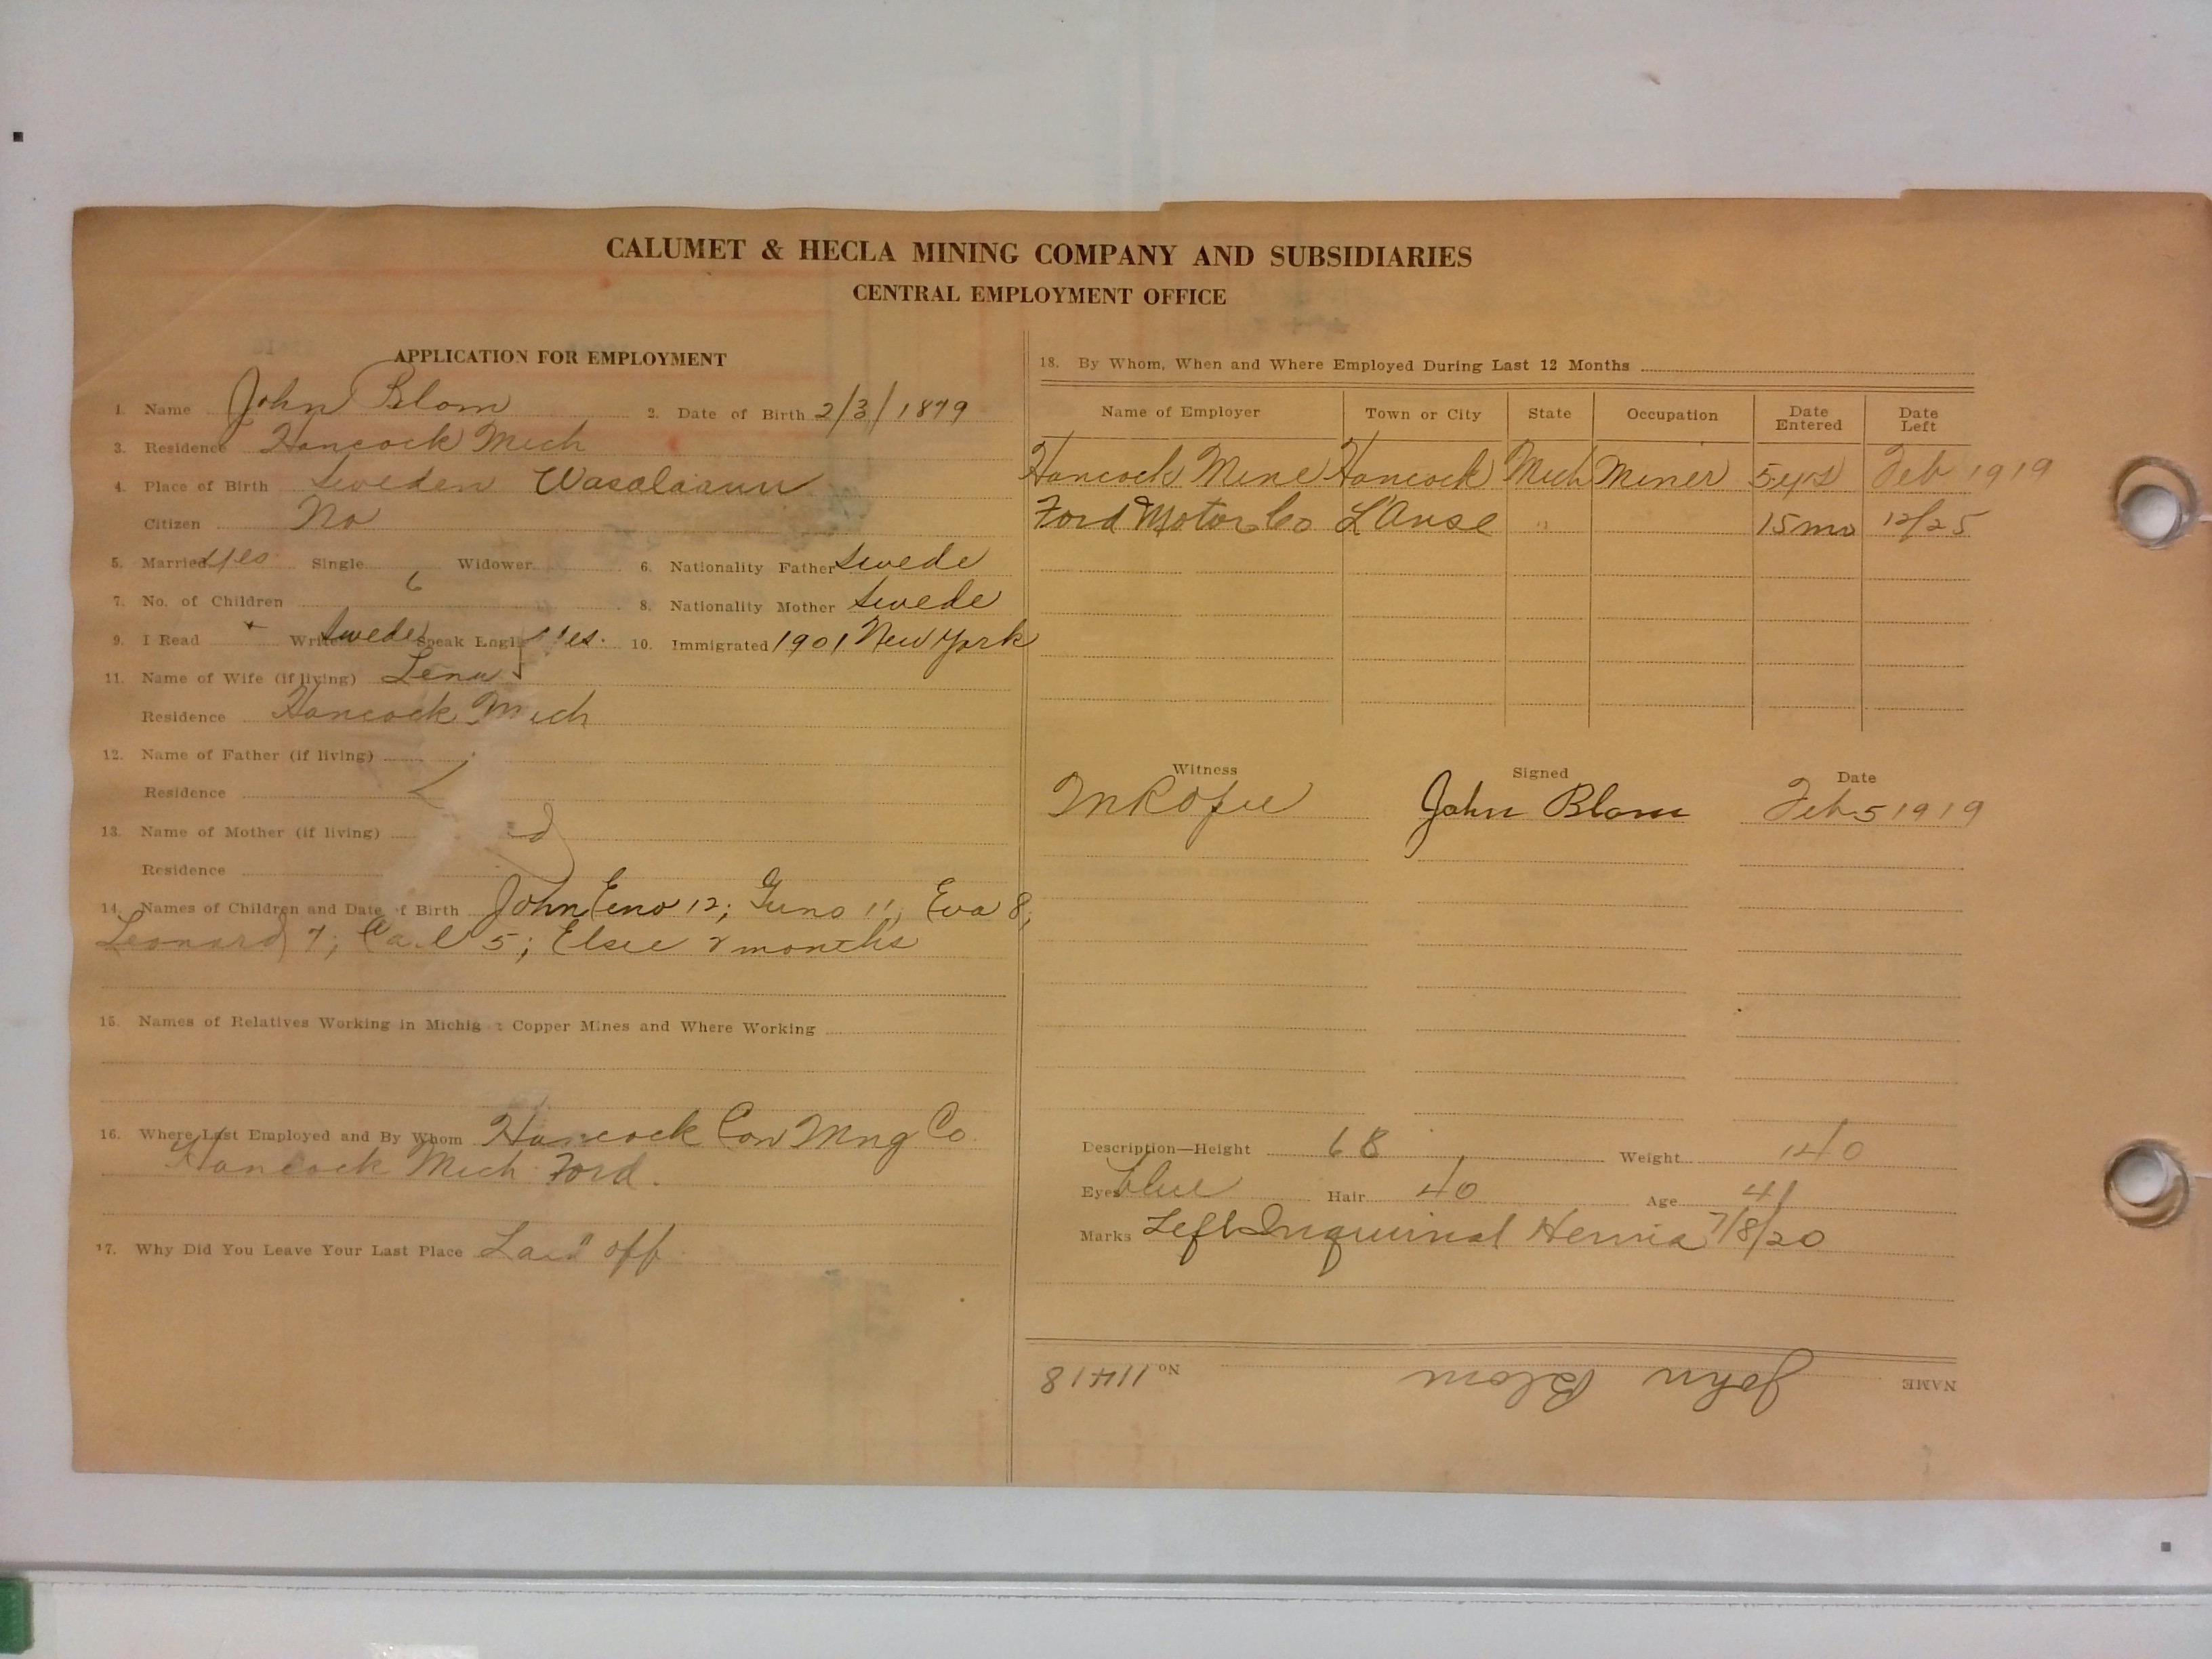 CALUMET & HECLA MINING COMPANY AND SUBSIDIARIES
CENTRAL EMPLOYMENT OFFICE
APPLICATION FOR EMPLOYMENT
1. Name John Blom 2. Date of Birth 2/3/1879
3. Residence Hancock Mich
4. Place of Birth Sweden Wasalaanu
Citizen No
5. Married yes Single Widower 6. Nationality Father Swede
7. No. of Children 6 8. Nationality Mother Swede
9. I Read Write Swede Speak Engl yes. 10. Immigrated 1901 New York
11. Name of Wife (if living) Lena
Residence Hancock Mich
12. Name of Father (if living)
Residence
13. Name of Mother (if living)
Residence
14. Names of Children and Date of Birth John Eno 12; Guno 11, Eva 8;
Leonard 7; Carl 5; Elsie 2 months
15. Names of Relatives Working in Michig Copper Mines and Where Working
16. Where Last Employed and By Whom Hancock Con Mng Co.
Hancock Mich Ford.
17. Why Did You Leave Your Last Place Laid off
18. By Whom, When and Where Employed During Last 12 Months
Name of Employer Town or City State Occupation Date Entered Date Left
Hancock Mine Hancock Mich Miner 5 yrs Feb 1919
Ford Motor Co L'Anse " 15 mo 12/25
Witness Signed Date
John Blom Feb 5 1919
Description—Height 68 Weight 140
Eyes blue Hair 40 Age 41
Marks Left Inquinal Hernia 7/8/20
NAME John Blom No. 11418